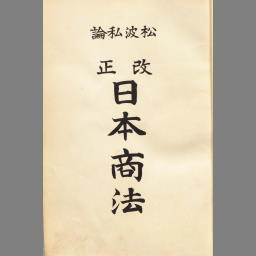 松波私論
改正
日本商法